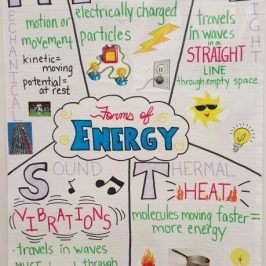 MECHANICAL
motion or
movement
kinetic=
moving
potential=
at rest
electrically charged
particles
LIGHT
travels
in waves
in a
STRAIGHT
LINE
through empty space
Forms of
ENERGY
SOUND
VIBRATIONS
travels in waves
MUST
through
THERMAL
HEAT
molecules moving faster=
more energy